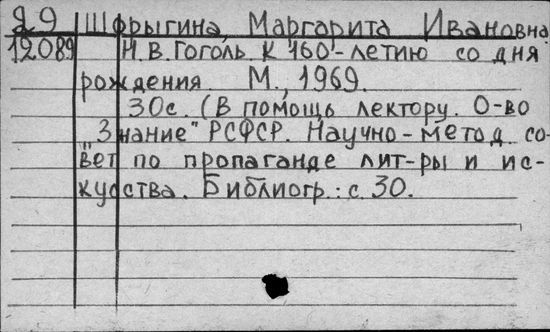 Я9 Шфрыгина, Маргарита Ивановна
12089 Н.В. Гоголь. К 160-летию со дня
рождения. М., 1969.
30с. (В помощь лектору. О-во
"Знание" РСФСР. Научно-метод. со-
вет по пропаганде лит-ры и ис-
кусства. Библиогр.: с. 30.